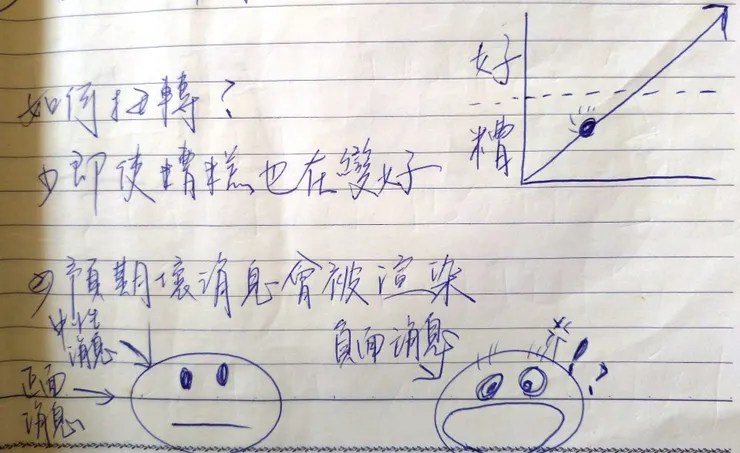 如何扭轉？
1) 即使糟糕也在變好
好
糟
2) 預期壞消息會被渲染
中性
消息
正面
消息
負面消息
!?